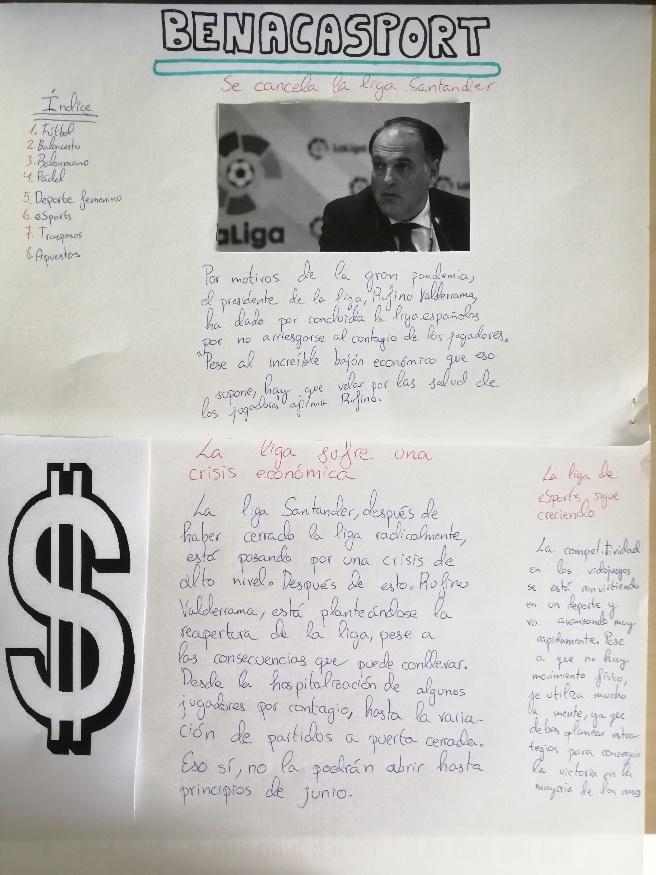 BENACASPORT
Se cancela la liga Santander
Índice
1. Fútbol
2. Baloncesto
3. Balonmano
4. Pádel
5. Deporte femenino
6. eSports
7. Traspasos
8. Apuestas
LaLiga
aLiga
Por motivos de la gran pandemia,
el presidente de la liga, Rufino Valderrama,
ha dado por concluida la liga españolas
por no arriesgarse al contagio de los jugadores.
"Pese al increíble bajón económico que eso
supone, hay que velar por las salud de
los jugadores" afirma Rufino.
La liga sufre una
crisis económica
La liga Santander, después de
haber cerrado la liga radicalmente,
está pasando por una crisis de
alto nivel. Después de esto. Rufino
Valderrama, está planteándose la
reapertura de la liga, pese a
las consecuencias que puede conllevar.
Desde la hospitalización de algunos
jugadores por contagio, hasta la varia-
ción de partidos a puerta cerrada.
Eso sí, no la podrán abrir hasta
principios de junio.
La liga de
eSports sigue
creciendo
La competitividad
en los vidojuegos
se está convirtiendo
en un deporte y
va avanzando muy
rapidamente. Pese
a que no hay
movimiento físico,
se utiliza mucho
la mente, ya que
debes plantear estra
tegias para conseguir
la victoria en la
mayoría de los casos